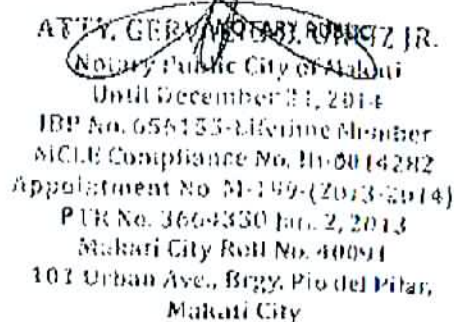 ATTY. JR.
NOTARY PUBLIC
Notary Public City of Makati
Until December 31, 2014
IBP No. 656155-Lifetime Member
MCLE Compliance No. III-0014282
Appointment No. M-199-(2013-2014)
PTR No. 3664330 Jan. 2, 2013
Makati City Roll No. 40091
103 Urban Ave., Brgy. Pio del Pilar,
Makati City